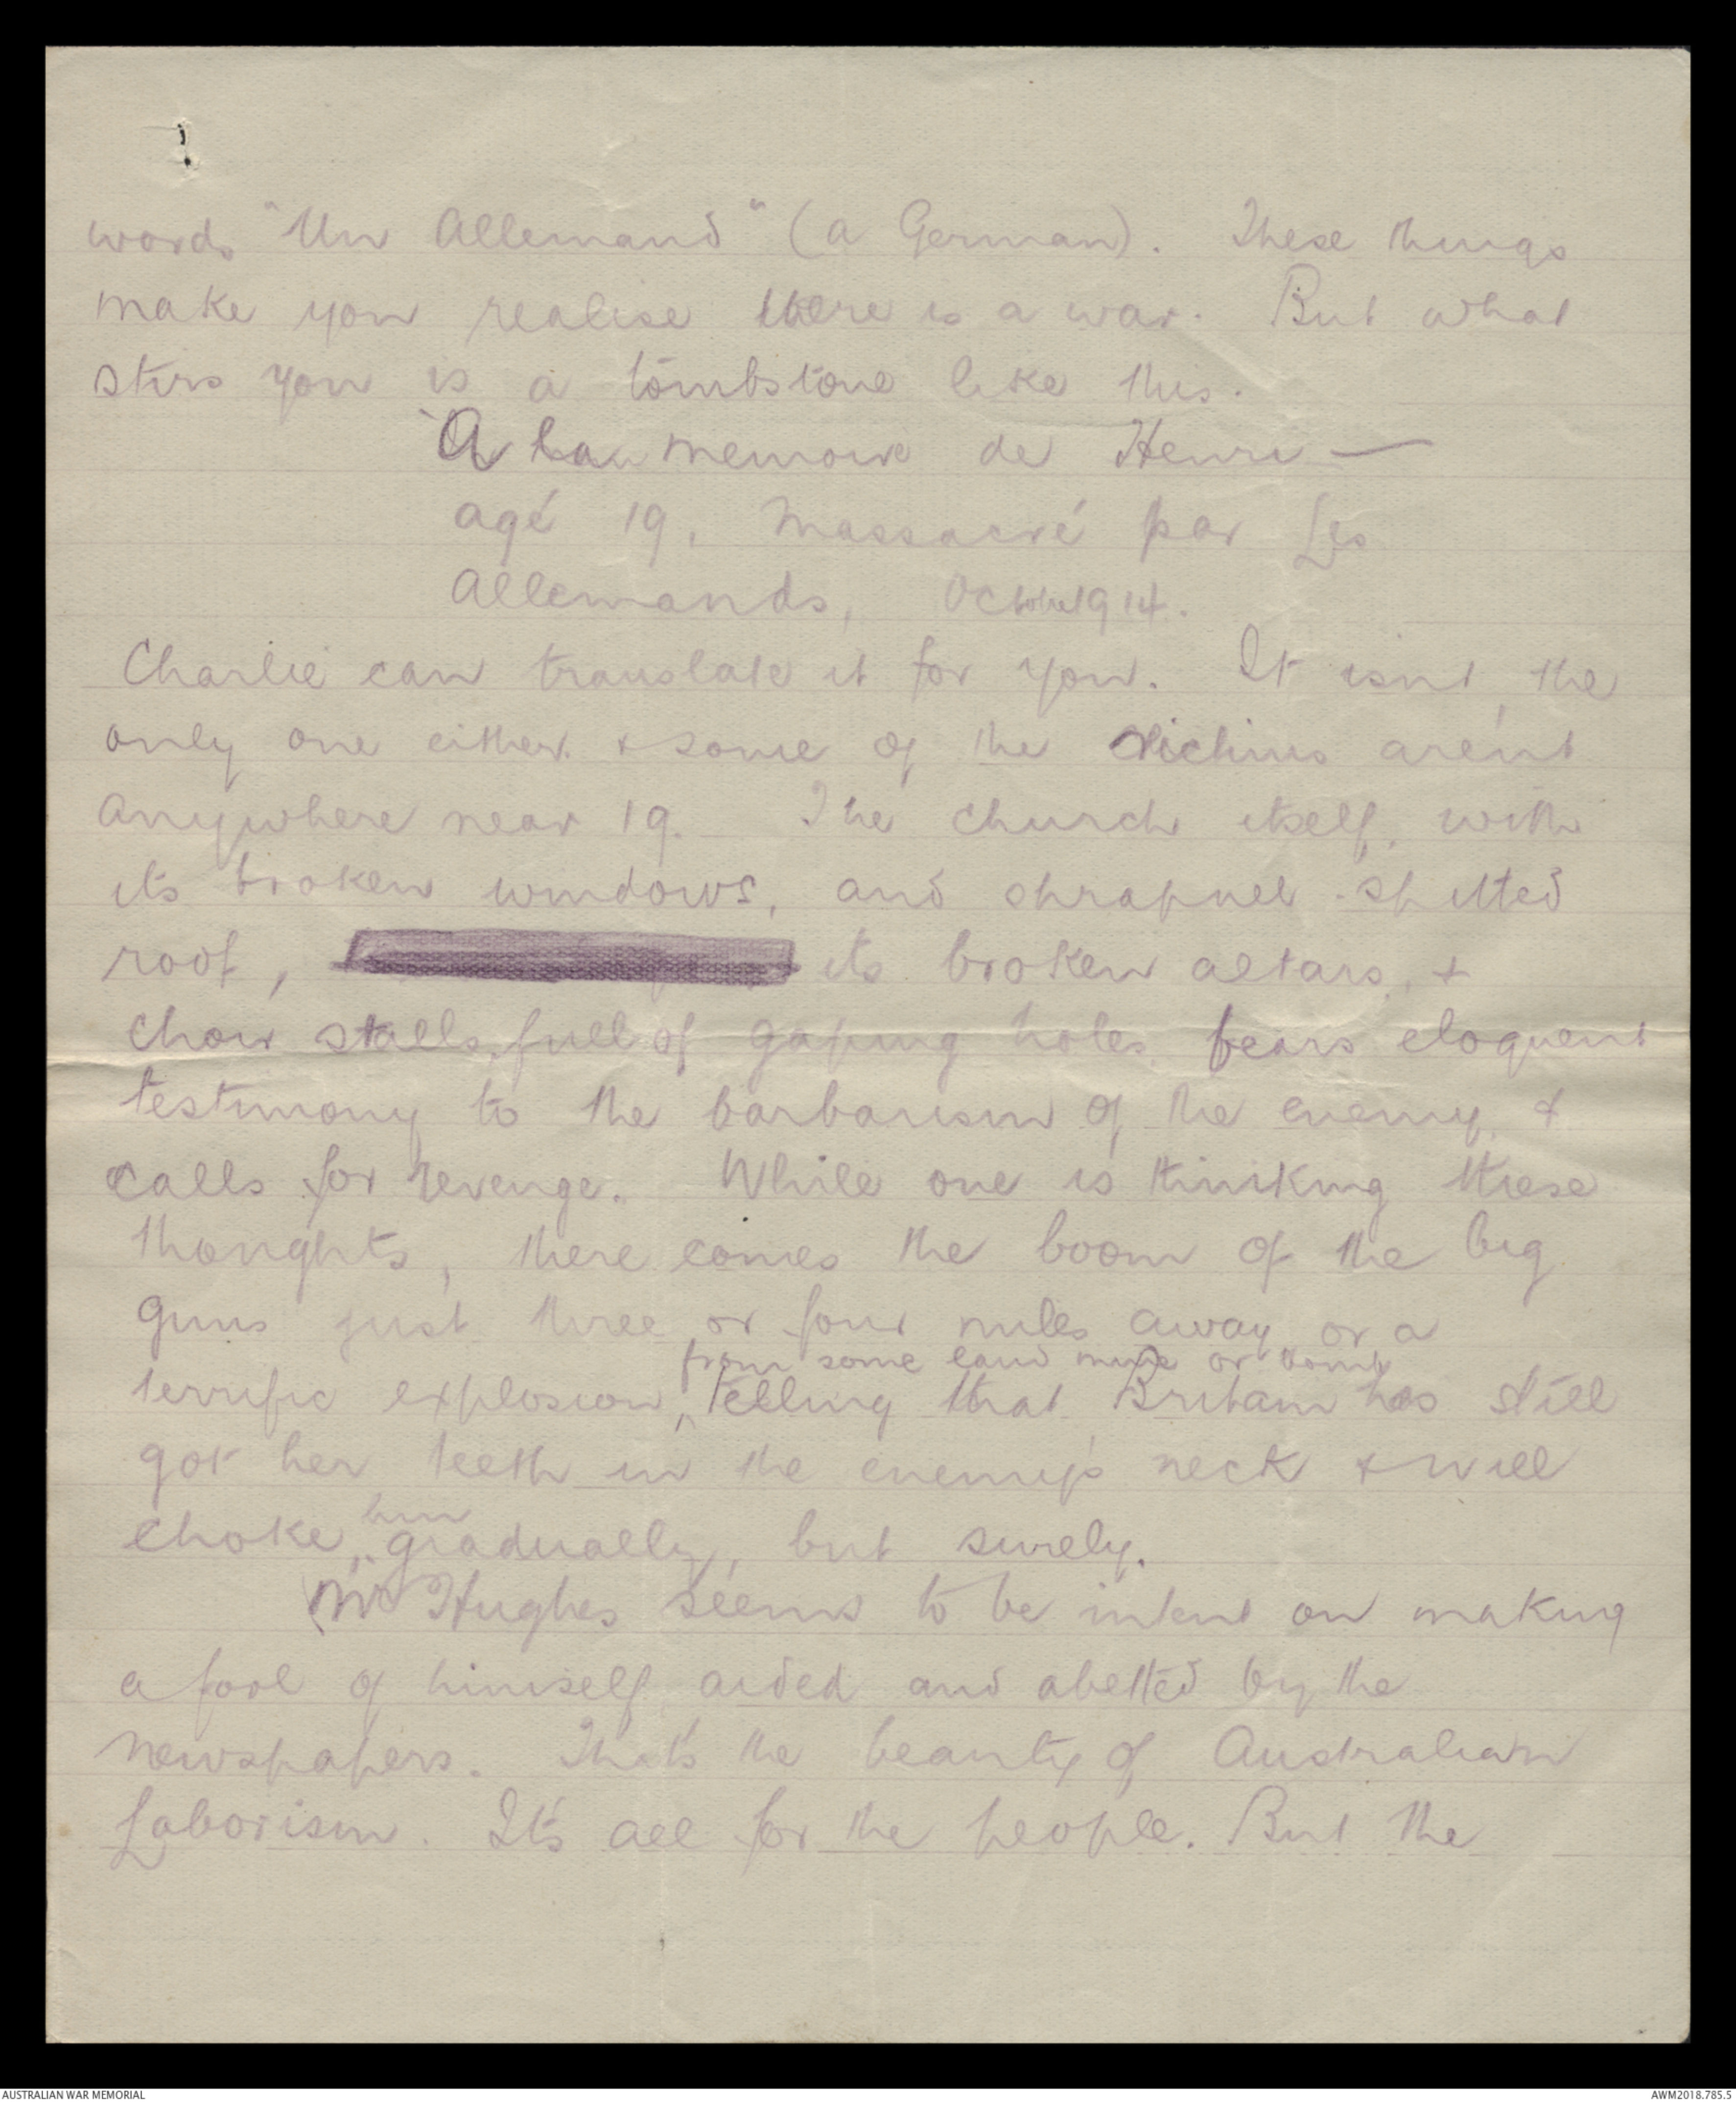 words "Un Allemand" (a German). These things
make you realise there is a war. But what
stirs you is a tombstone like this.
"A la memoire de Henri —
agé 19, Massacré par Les
Allemands, Octobre 1914.
Charlie can translate it for you. It isnt the
only one either & some of the victims are'nt
anywhere near 19. The church itself, with
its broken windows, and shrapnel-splitted
roof, its broken altars, &
choir stalls, full of gaping holes, bears eloquent
testimony to the barbarism of the enemy, &
calls for revenge. While one is thinking these
thoughts, there comes the boom of the big
guns just three or four miles away, or a
from some land mine or bomb
terrific explosion, telling that Britain has still
got her teeth in the enemy's neck & will
him
choke gradually, but surely.
Mr Hughes seems to be intent on making
a fool of himself aided and abetted by the
newspapers. That's the beauty of Australian
Laborism. It's all for the people. But the
AUSTRALIAN WAR MEMORIAL
AWM2018.785.5